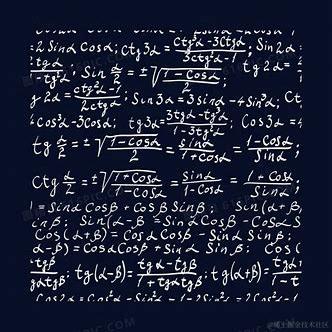 = 2 Sinα Cosα; Ctg3α = (Ctg³α - 3Ctgα)/(3Ctg²α - 1); Sin2α
tgα/(-tg²α); Sin α/2 = ±√((1 - Cosα)/2); tg2α =
g2α = (ctg²α - 1)/(2ctgα); Sin3α = 3Sinα - 4Sin³α; Ct
4Cos³α - 3Cosα; tg3α = (3tgα - tg³α)/(1 - 3tg²α); Cos3α =
tg α/2 = ±√((1 - cosα)/(1 + cosα)) = Sinα/(1 + Cosα) = (1 - Cosα)/Sinα;
Ctg α/2 = ±√((1 + Cosα)/(1 - Cosα)) = Sinα/(1 - Cosα) = (1 + Cosα)/Sinα;
= SinαCosβ + CosβSinα; Sin(α+β)
inβ; Sin(α-β) = SinαCosβ - CosαS
Cos(α+β) = CosαCosβ - Sinα Sinβ;
α-β) = CosαCosβ + Sinα Sinβ; Cos(
tgβ/(tgαtgβ); tg(α-β) = (tgα - tgβ)/(1 + tgαtgβ); tg(α+β) =
Cos2α = Cos²α - Sin²α
@稀土掘金技术社区